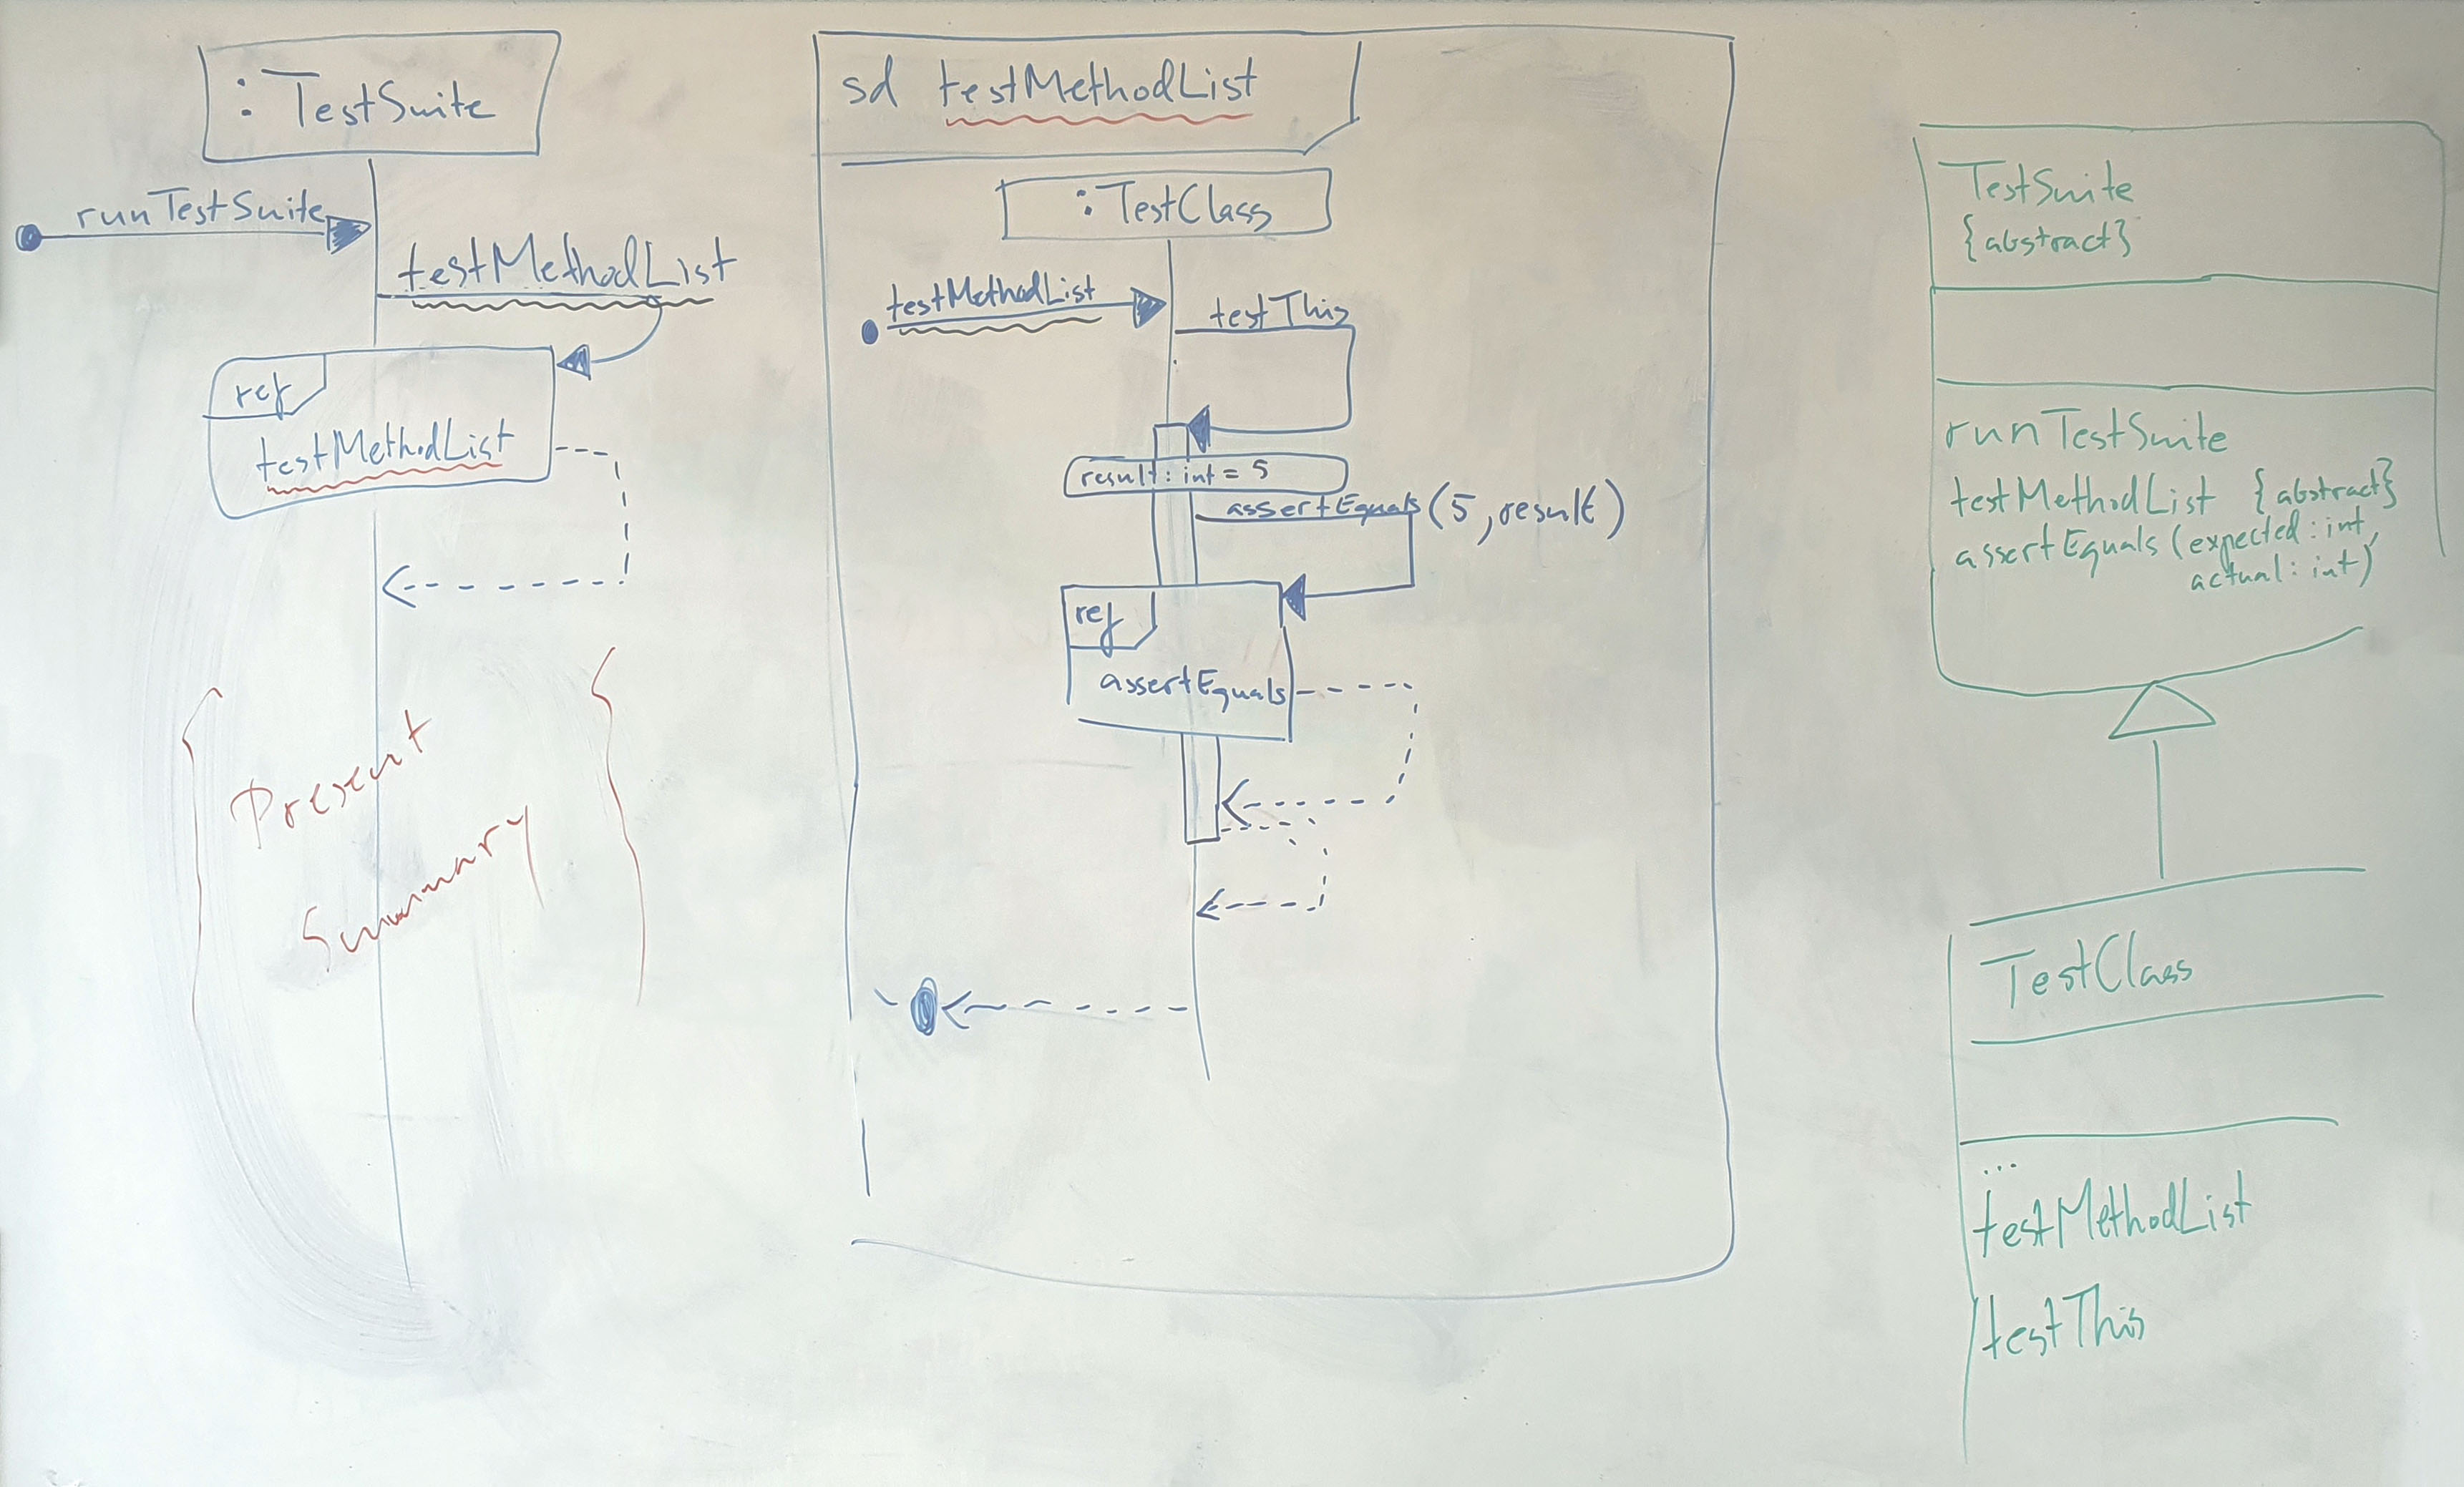 : TestSuite
runTestSuite
testMethodList
ref
testMethodList
Present
Summary
sd testMethodList
: TestClass
testMethodList
testThis
result: int = 5
assertEquals (5, result)
ref
assertEquals
TestSuite
{abstract}
runTestSuite
testMethodList {abstract}
assertEquals (expected: int,
actual: int)
TestClass
...
testMethodList
testThis